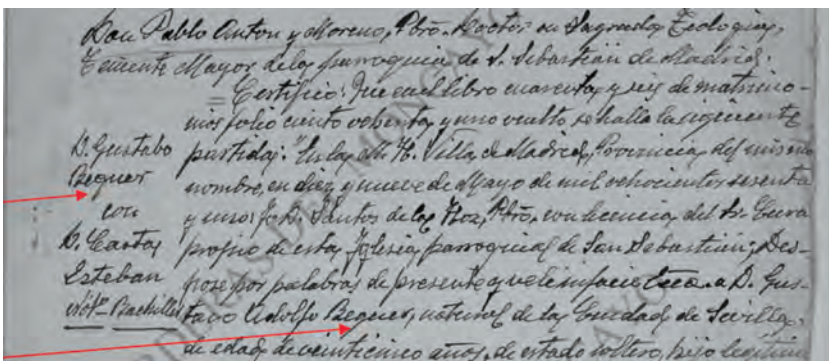 Don Pablo Anton y Moreno, Pbro. Doctor en Sagrada Teologia,
Teniente Mayor de la parroquia de S. Sebastian de Madrid.
= Certifico: Que en el libro cuarenta y seis de matrimo-
nios folio ciento ochenta y uno vuelto se halla la siguiente
D. Gustabo
Bequer
con
D. Casta
Esteban
Notº Bachiller
partida: "En la M. H. Villa de Madrid, Provincia del mismo
nombre, en diez y nueve de Mayo de mil ochocientos sesenta
y uno: Yo D. Santos de la Hoz, Pbro, con licencia del Sr. Cura
propio de esta Iglesia parroquial de San Sebastian; Des-
pose por palabras de presente que a D. Gus-
tavo Adolfo Bequer, natural de la Ciudad de Sevilla,
de edad de veinticinco años, de estado soltero, hijo legitimo